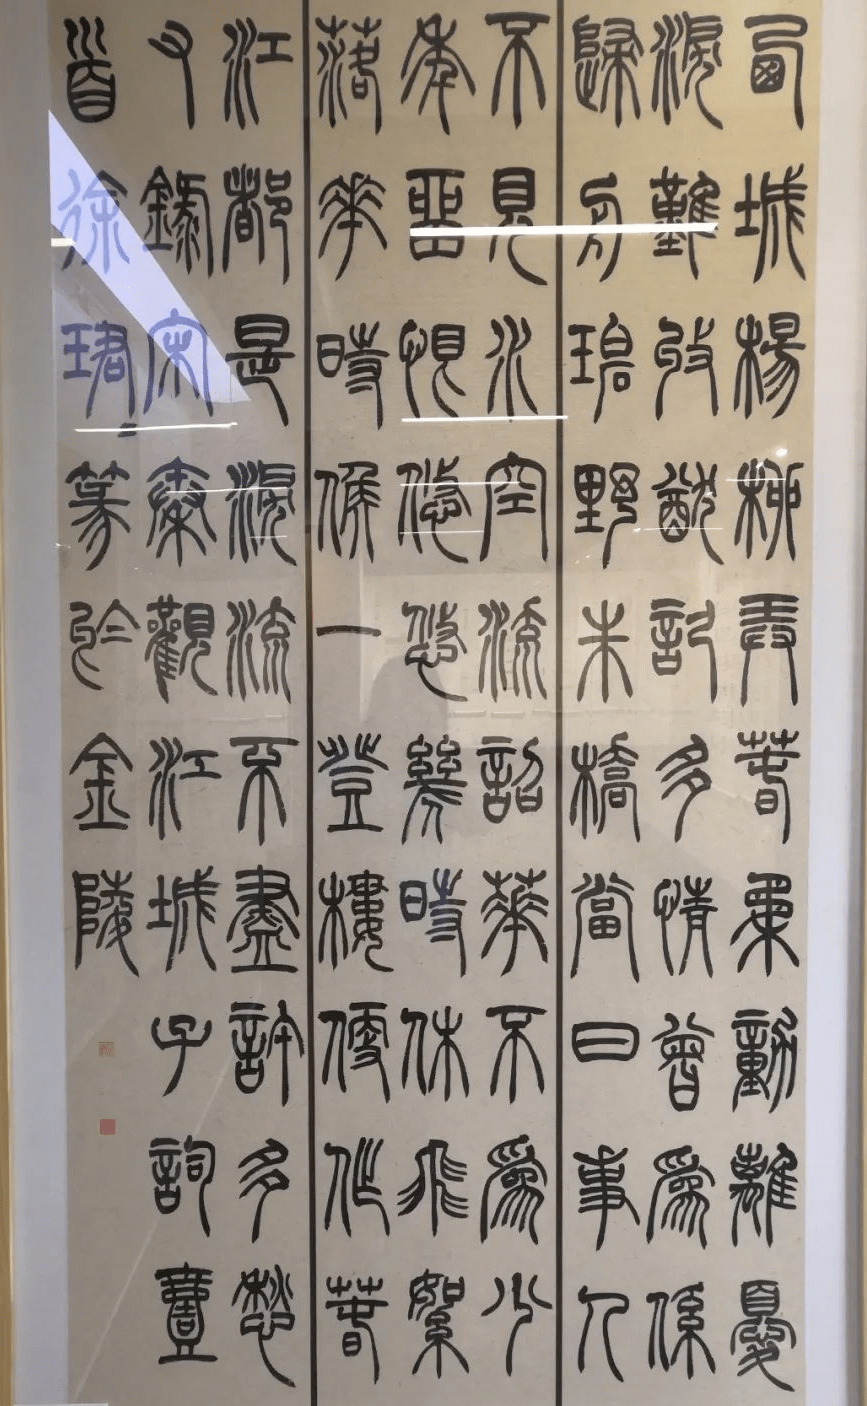 西城楊柳弄春柔動離憂
淚難收猶記多情曾爲係
歸舟碧野朱橋當日事人
不見水空流韶華不爲少
年留恨悠悠幾時休飛絮
落花時候一登樓便作春
江都是淚流不盡許多愁
又錄宋秦觀江城子詞壹
首徐珺篆於金陵